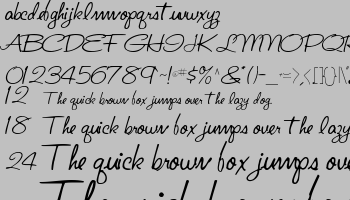 abcdefghijklmnopqrst uvwxyz
ABCDEF GHIJK LMNOPQR
0123456789 ~!@#$%^&*()-_
12 The quick brown fox jumps over the lazy dog.
18 The quick brown fox jumps over the lazy
24 The quick brown fox jumps ove